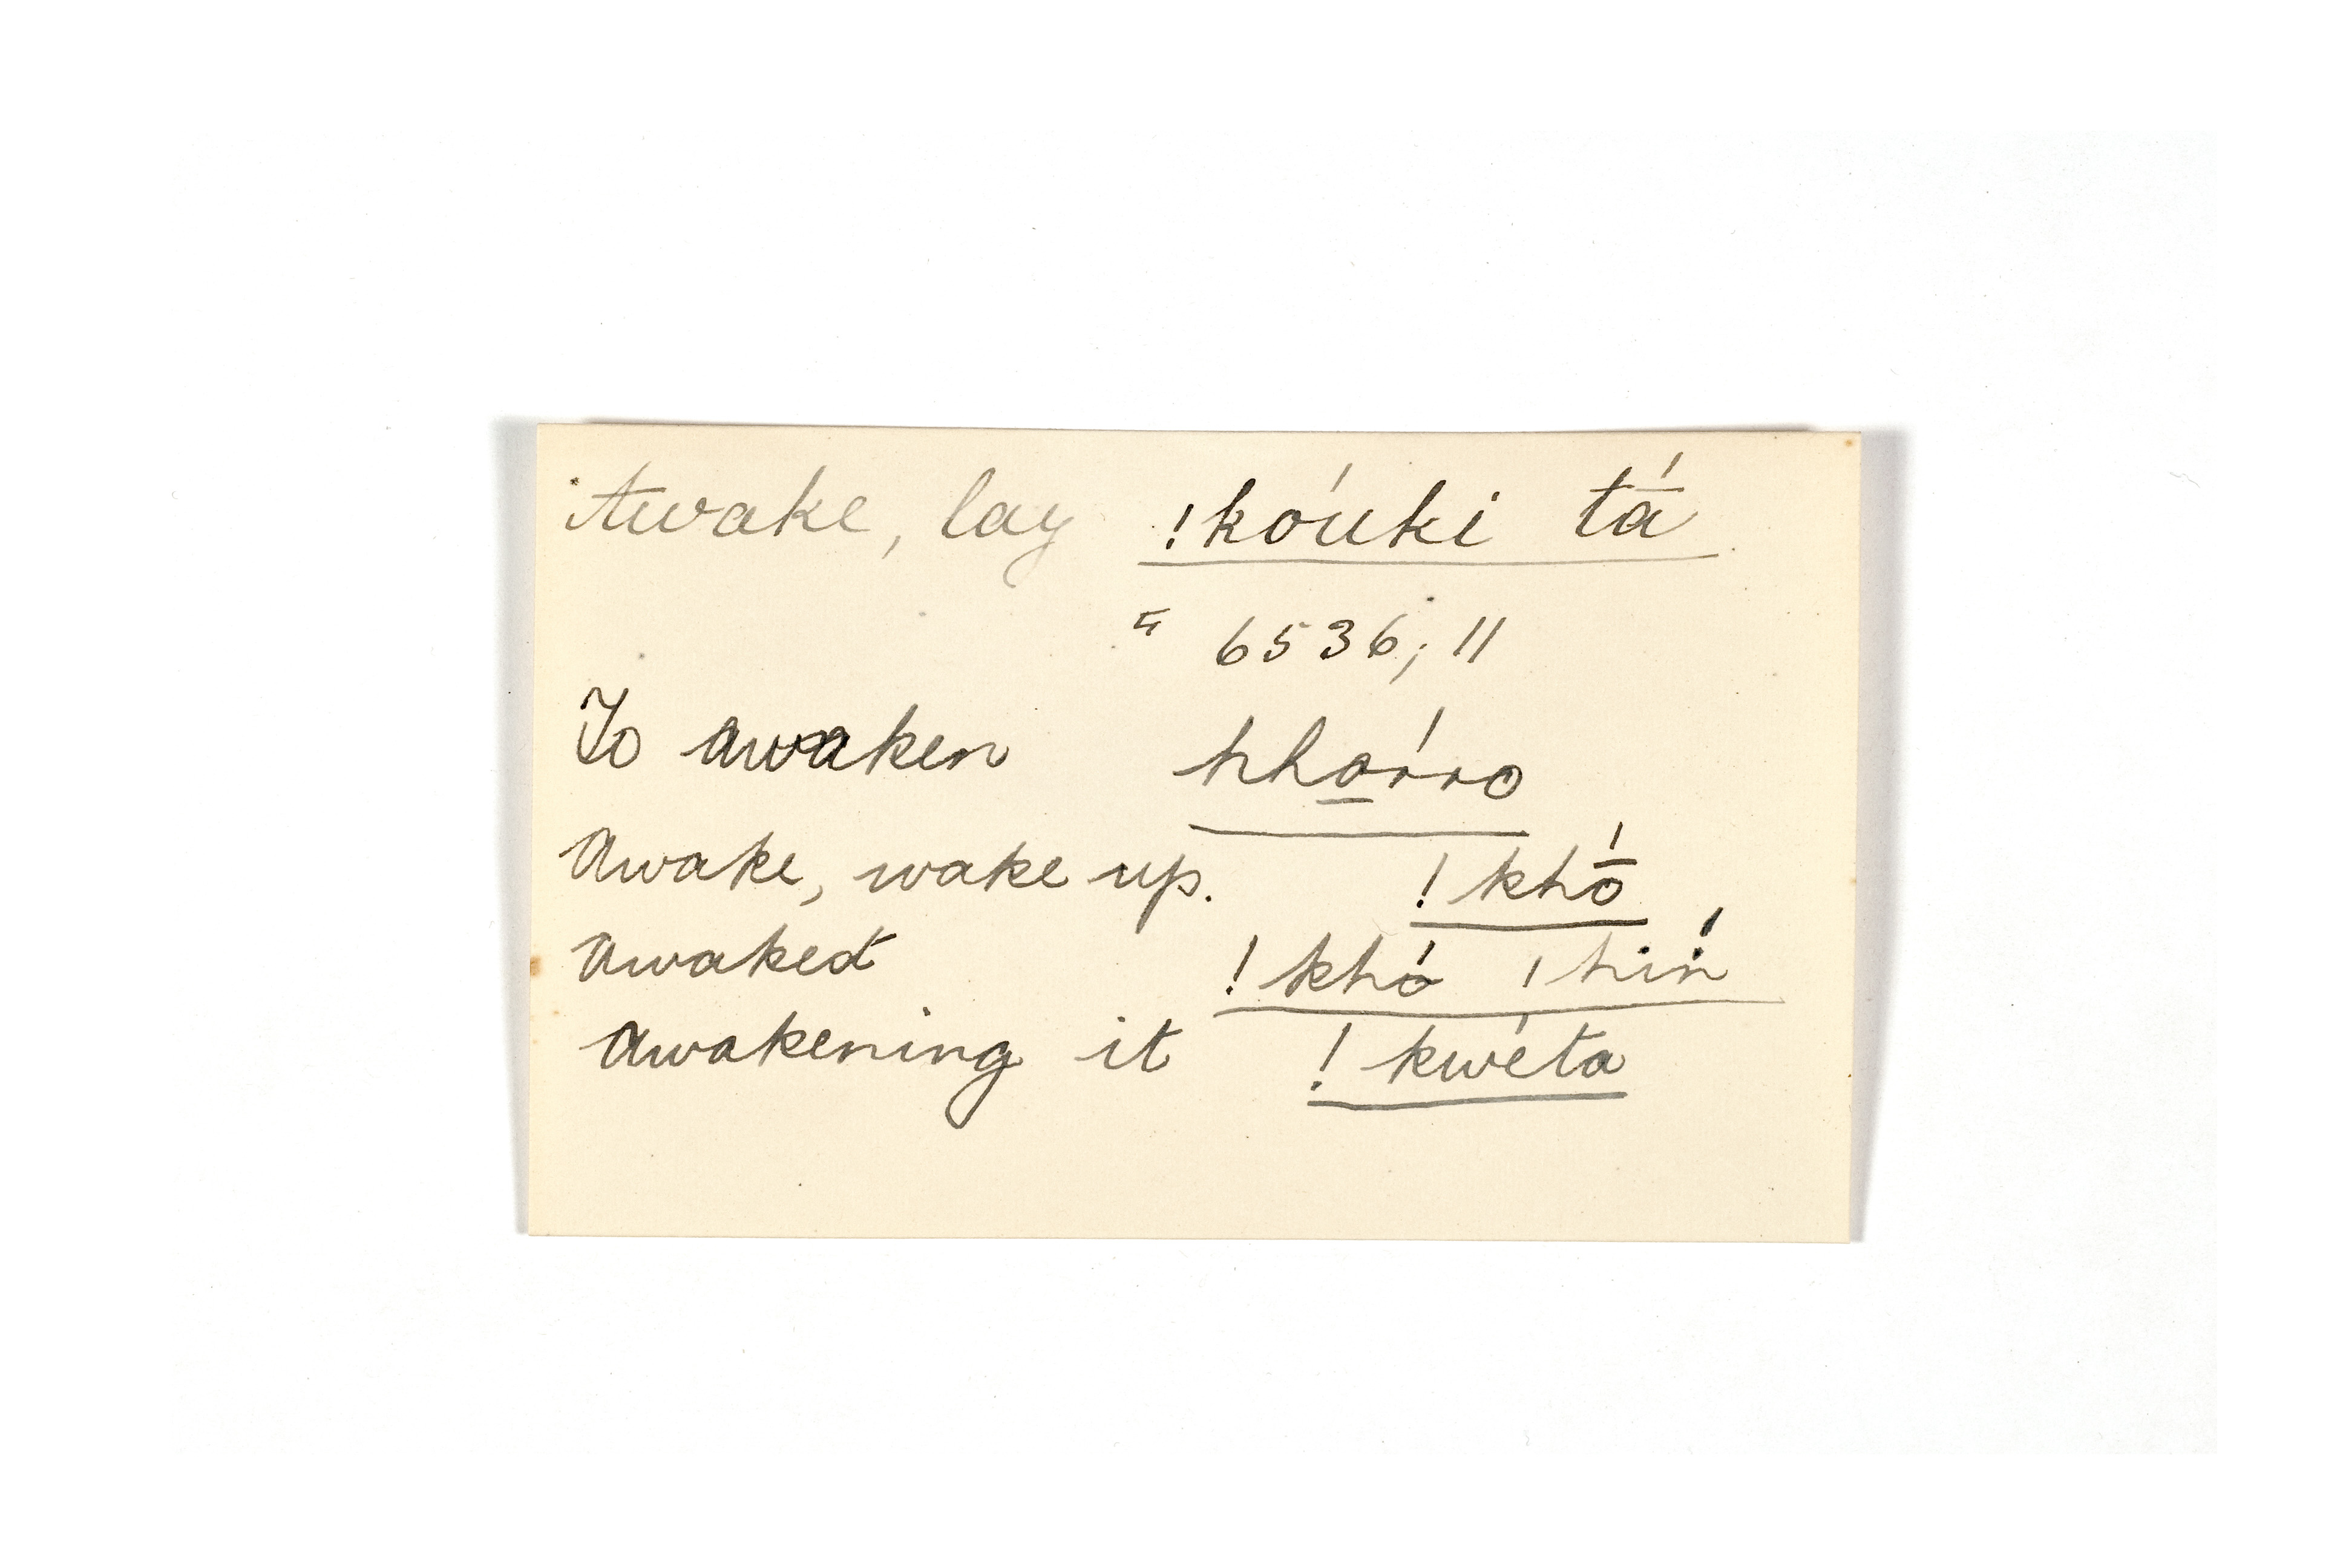 Awake, lay !kóuki tā́
" 6536; 11
To awaken hha̱rro
Awake, wake up. !khṓ
Awaked !khó |hiń
Awakening it !kwéta